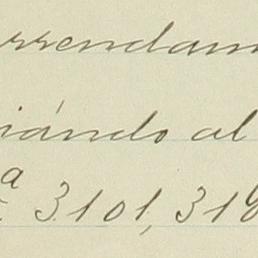 arrendam
iándo al
a 3101, 318